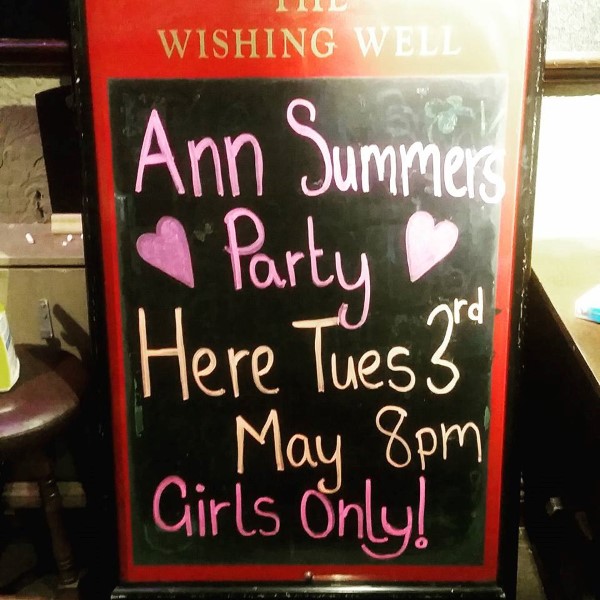 THE
WISHING WELL
Ann Summers
Party
Here Tues 3rd
May 8pm
Girls Only!